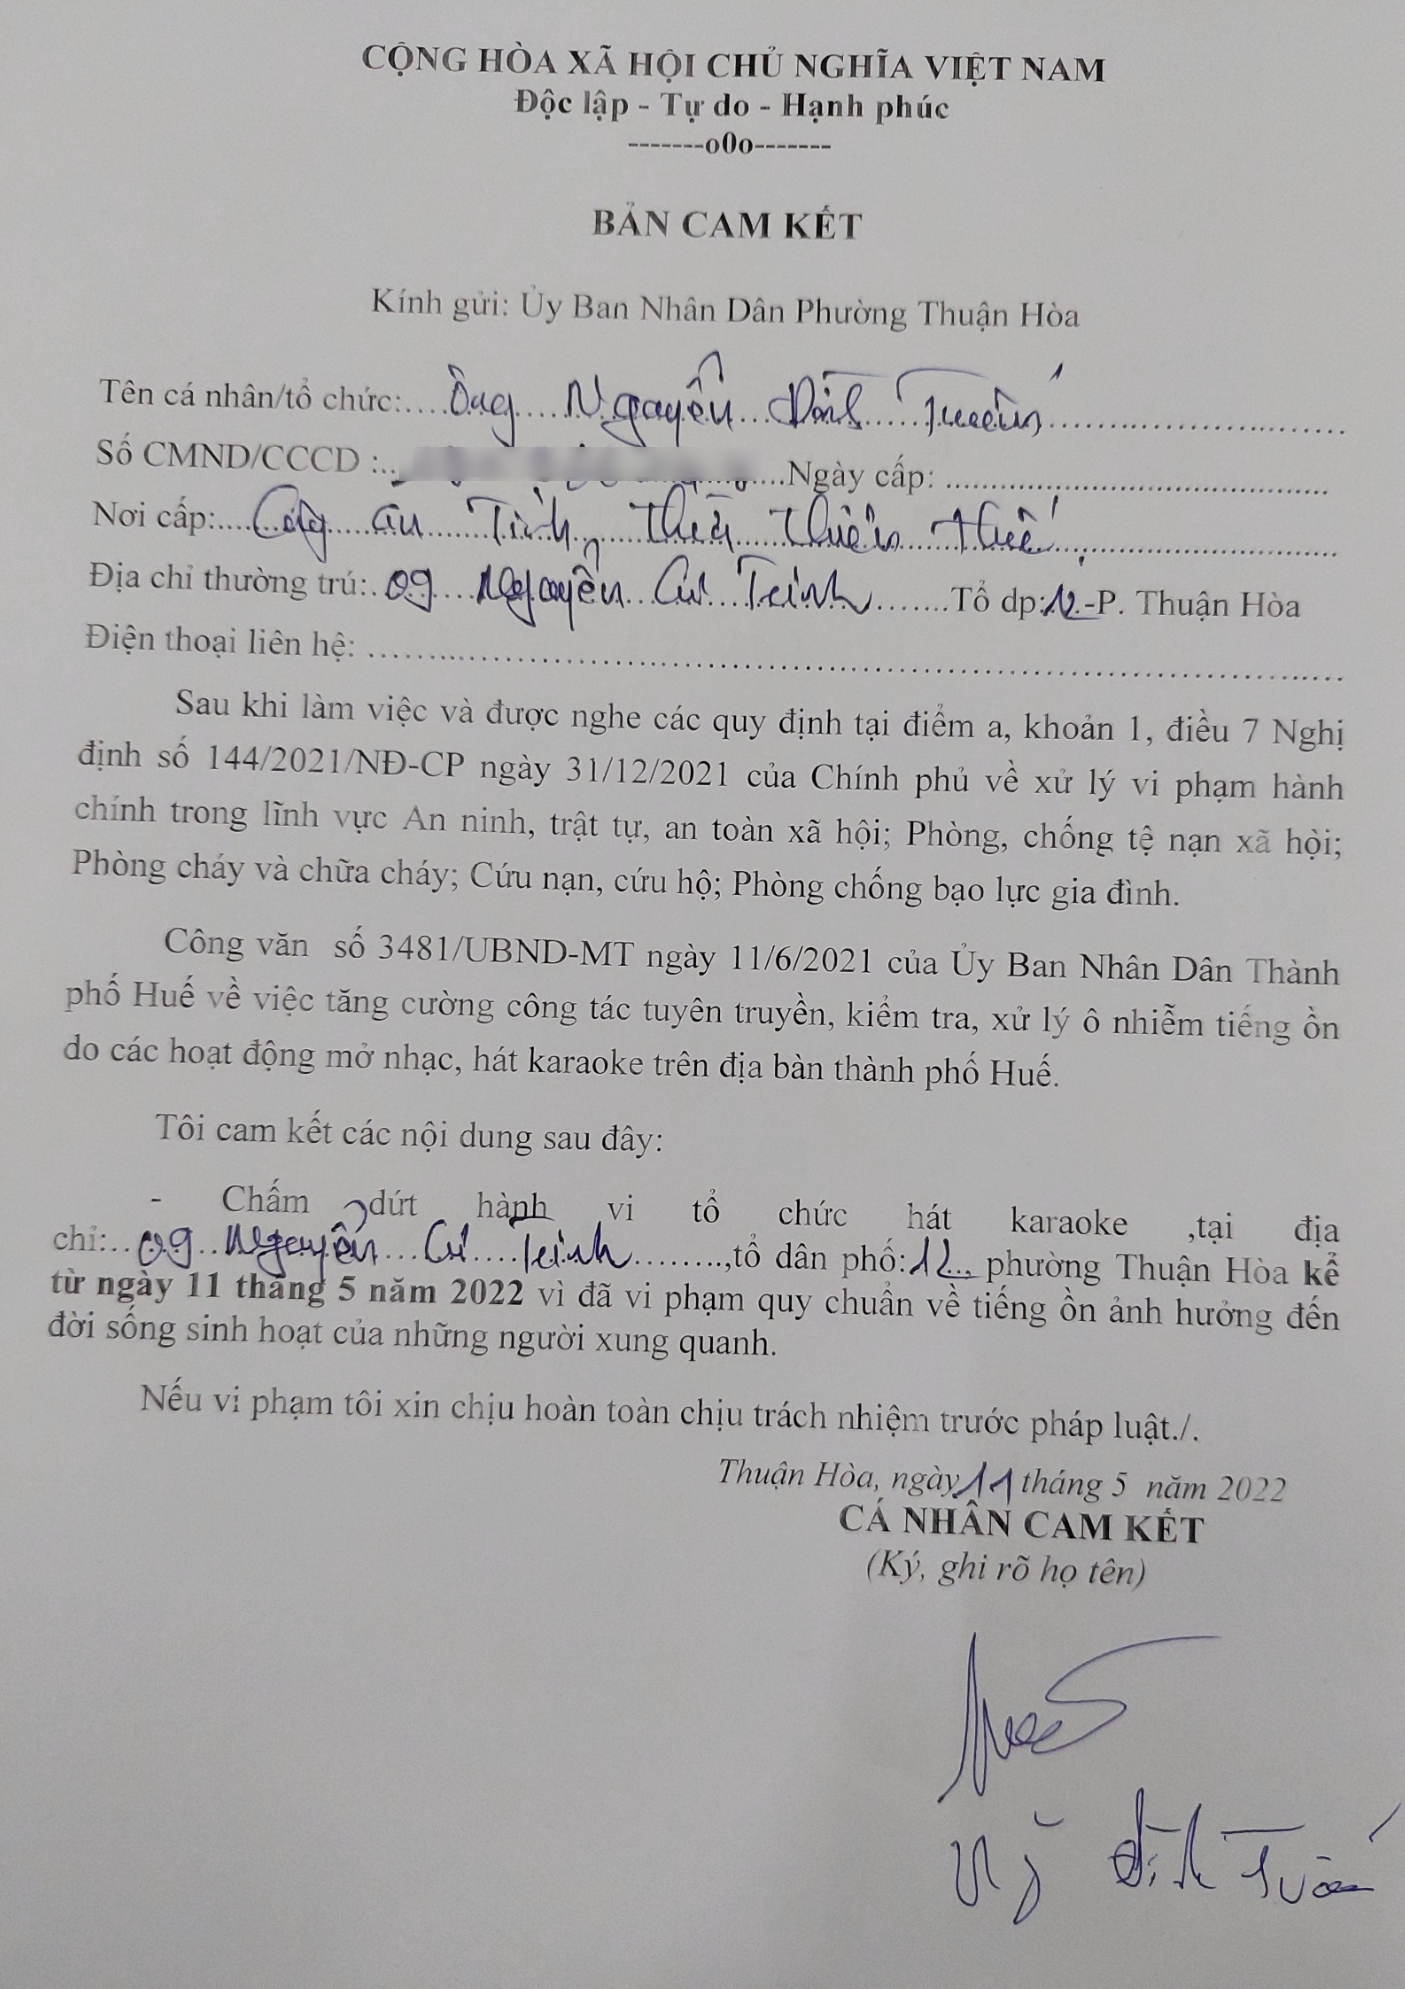 CỘNG HÒA XÃ HỘI CHỦ NGHĨA VIỆT NAM
Độc lập - Tự do - Hạnh phúc
-------o0o-------
BẢN CAM KẾT
Kính gửi: Ủy Ban Nhân Dân Phường Thuận Hòa
Tên cá nhân/tổ chức:....Ông Nguyễn Đình Tuấn
Số CMND/CCCD :.. Ngày cấp: ..........
Nơi cấp:....Công an Tỉnh Thừa Thiên Huế
Địa chỉ thường trú:.09 Nguyễn Cư Trinh.......Tổ dp:12.-P. Thuận Hòa
Điện thoại liên hệ: ..........
Sau khi làm việc và được nghe các quy định tại điểm a, khoản 1, điều 7 Nghị
định số 144/2021/NĐ-CP ngày 31/12/2021 của Chính phủ về xử lý vi phạm hành
chính trong lĩnh vực An ninh, trật tự, an toàn xã hội; Phòng, chống tệ nạn xã hội;
Phòng cháy và chữa cháy; Cứu nạn, cứu hộ; Phòng chống bạo lực gia đình.
Công văn số 3481/UBND-MT ngày 11/6/2021 của Ủy Ban Nhân Dân Thành
phố Huế về việc tăng cường công tác tuyên truyền, kiểm tra, xử lý ô nhiễm tiếng ồn
do các hoạt động mở nhạc, hát karaoke trên địa bàn thành phố Huế.
Tôi cam kết các nội dung sau đây:
- Chấm dứt hành vi tổ chức hát karaoke ,tại địa
chỉ:..09 Nguyễn Cư Trinh.........,tổ dân phố:12.., phường Thuận Hòa kể
từ ngày 11 tháng 5 năm 2022 vì đã vi phạm quy chuẩn về tiếng ồn ảnh hưởng đến
đời sống sinh hoạt của những người xung quanh.
Nếu vi phạm tôi xin chịu hoàn toàn chịu trách nhiệm trước pháp luật./.
Thuận Hòa, ngày 11 tháng 5 năm 2022
CÁ NHÂN CAM KẾT
(Ký, ghi rõ họ tên)
Ng̃ Đình Tuấn